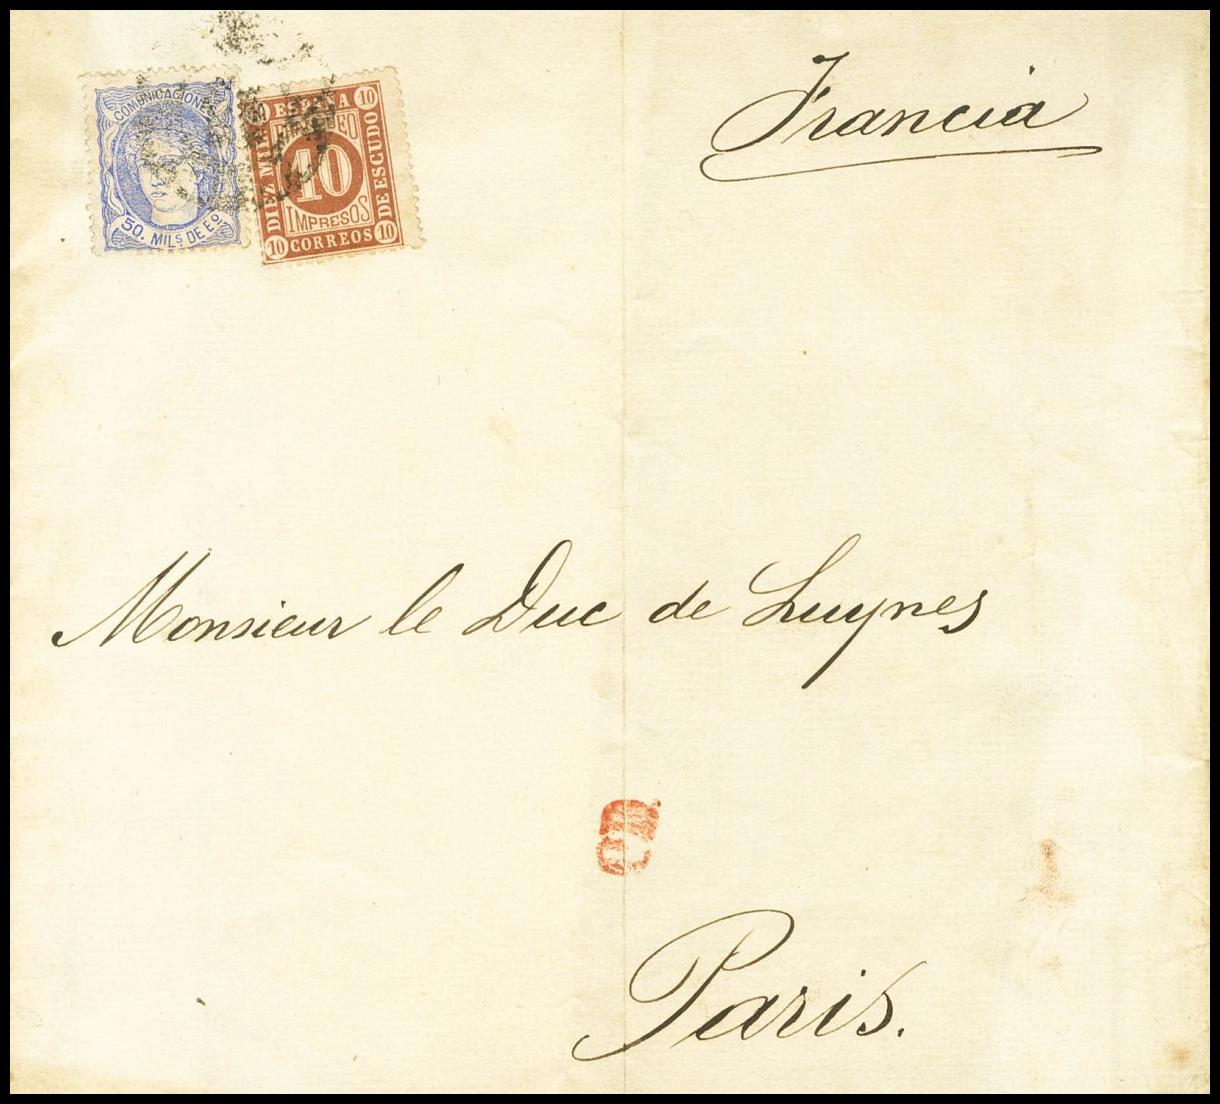 Francia
COMUNICACIONES
50. MILS DE Eº
ESPAÑA
DIEZ MILS
DE ESCUDO
10
10
IMPRESOS
10 CORREOS 10
Monsieur le Duc de Luynes
PD
Paris.